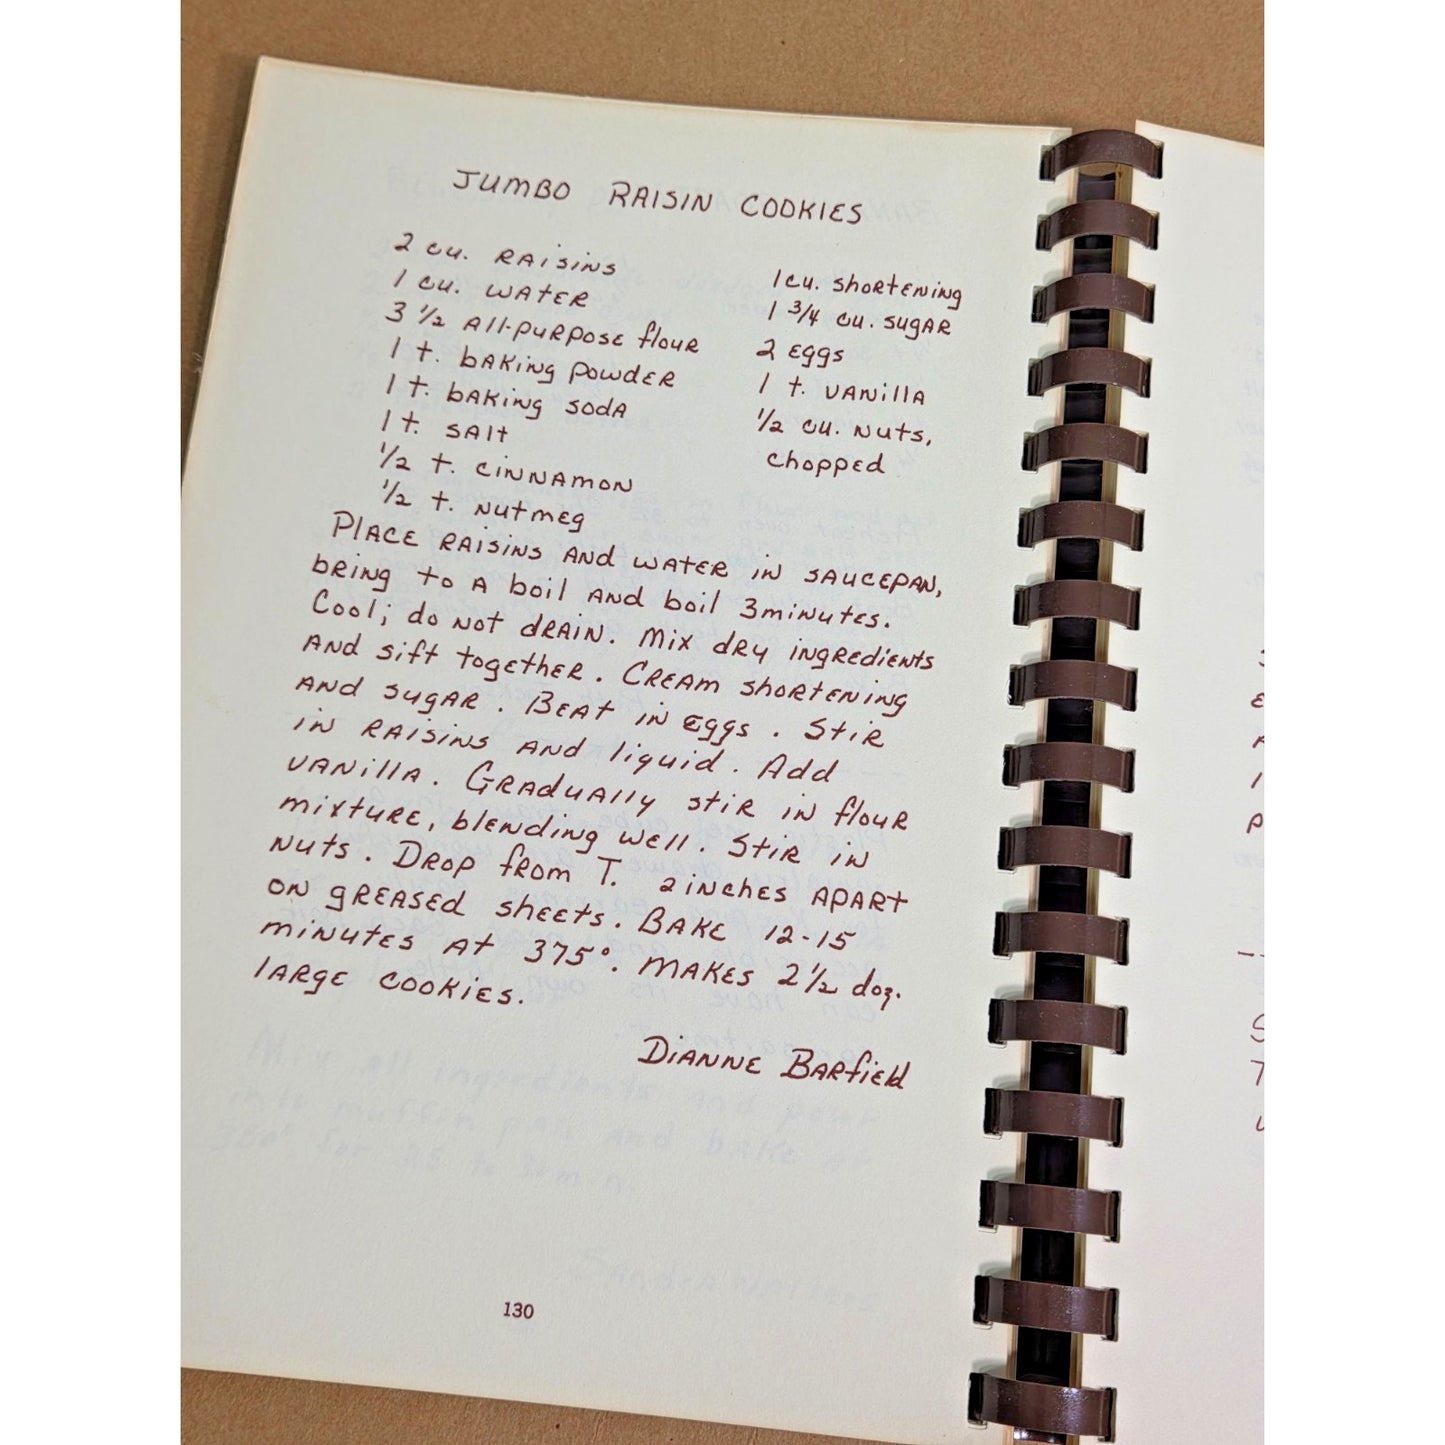 JUMBO RAISIN COOKIES
2 cu. RAISINS
1 cu. WATER
3 1/2 All-purpose flour
1 t. baking powder
1 t. baking soda
1 t. salt
1/2 t. cinnamon
1/2 t. nutmeg
1 cu. shortening
1 3/4 cu. sugar
2 eggs
1 t. vanilla
1/2 cu. nuts,
chopped
Place raisins and water in saucepan,
bring to a boil and boil 3 minutes.
Cool; do not drain. Mix dry ingredients
and sift together. Cream shortening
and sugar. Beat in eggs. Stir
in raisins and liquid. Add
vanilla. Gradually stir in flour
mixture, blending well. Stir in
nuts. Drop from T. 2 inches apart
on greased sheets. Bake 12-15
minutes at 375°. Makes 2 1/2 doz.
large cookies.
Dianne Barfield
130